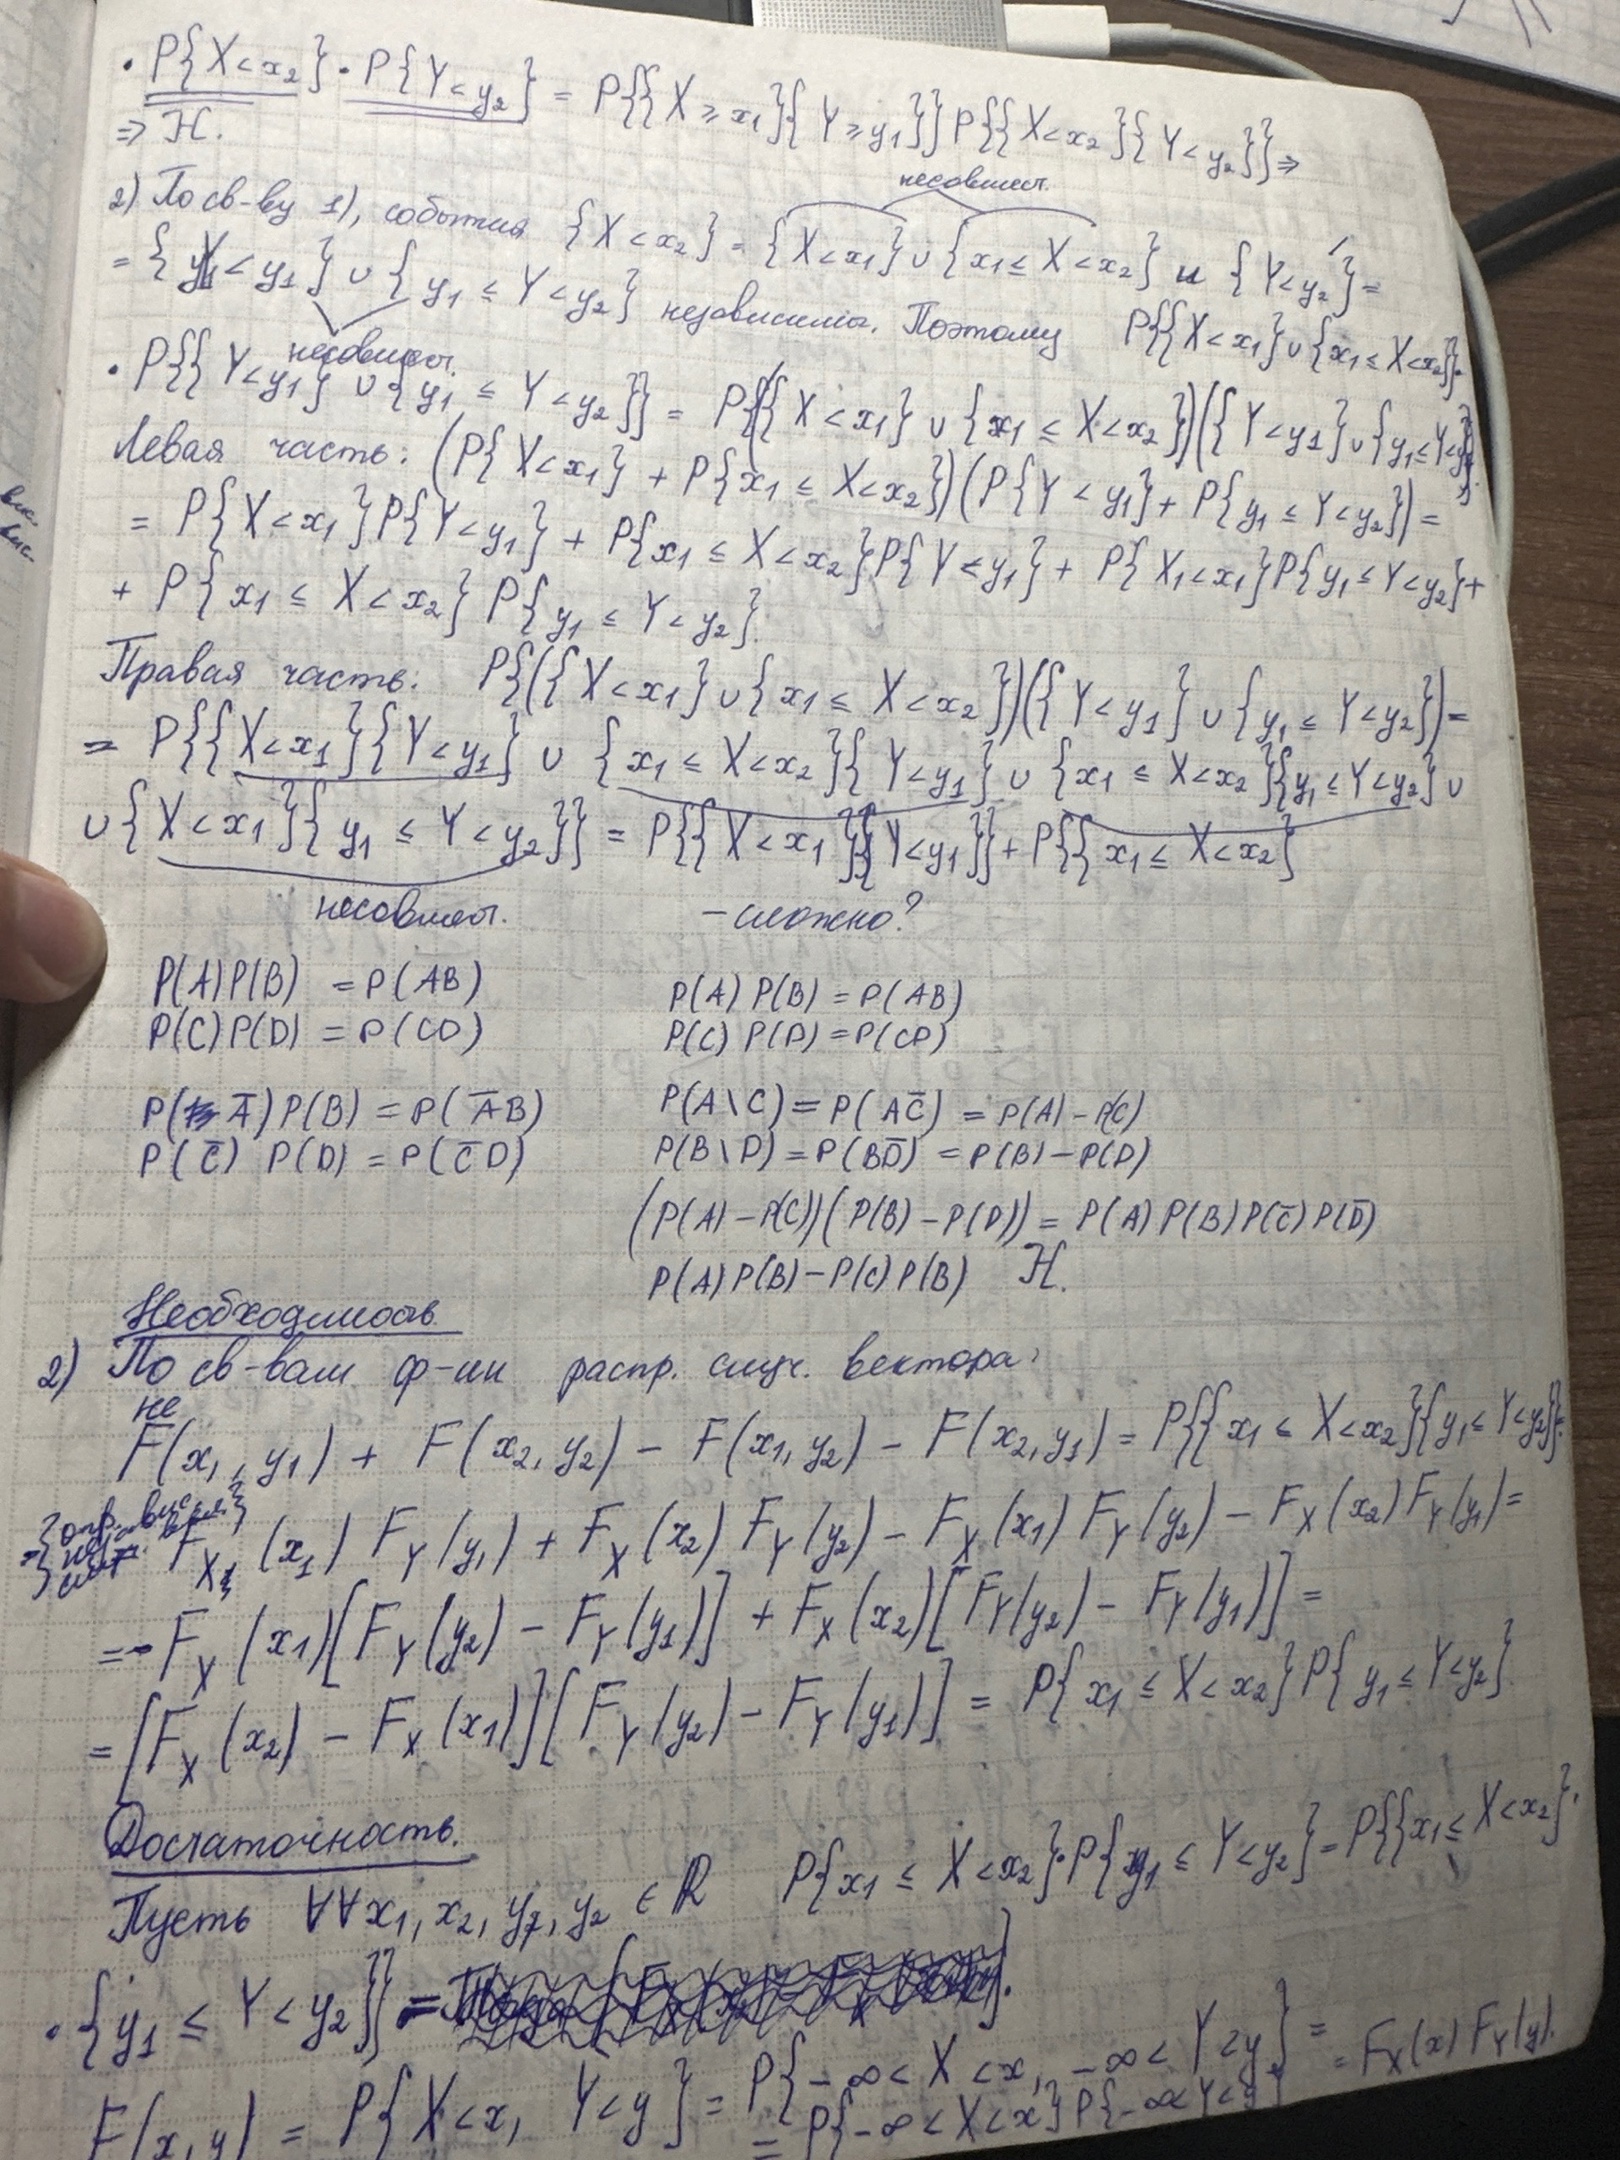 · P{X<x₂}·P{Y<y₂} = P{{X≥x₁}{Y≥y₁}}P{{X<x₂}{Y<y₂}}⇒
⇒ Н.
несовмест.
2) По св-ву 1), события {X<x₂} = {X<x₁}∪{x₁≤X<x₂} и {Y<y₂}=
= {Y<y₁}∪{y₁≤Y<y₂} независимы. Поэтому P{{X<x₁}∪{x₁≤X<x₂}}·
несовмест.
· P{{Y<y₁}∪{y₁≤Y<y₂}} = P{({X<x₁}∪{x₁≤X<x₂})({Y<y₁}∪{y₁≤Y<y₂})}
Левая часть: (P{X<x₁} + P{x₁≤X<x₂})(P{Y<y₁}+P{y₁≤Y<y₂})=
= P{X<x₁}P{Y<y₁} + P{x₁≤X<x₂}P{Y<y₁} + P{X₁<x₁}P{y₁≤Y<y₂}+
+ P{x₁≤X<x₂}P{y₁≤Y<y₂}.
Правая часть: P{({X<x₁}∪{x₁≤X<x₂})({Y<y₁}∪{y₁≤Y<y₂})=
= P{{X<x₁}{Y<y₁}∪{x₁≤X<x₂}{Y<y₁}∪{x₁≤X<x₂}{y₁≤Y<y₂}∪
∪{X<x₁}{y₁≤Y<y₂}} = P{{X<x₁}{Y<y₁}}+P{{x₁≤X<x₂}
несовмест. – сложно?
P(A)P(B) = P(AB)
P(C)P(D) = P(CD)
P(A̅)P(B) = P(A̅B)
P(C̅) P(D) = P(C̅D)
P(A) P(B) = P(AB)
P(C) P(D) = P(CD)
P(A\C) = P(AC̅) = P(A)-P(C)
P(B\D) = P(BD̅) = P(B)-P(D)
(P(A)-P(C))(P(B)-P(D)) = P(A)P(B)P(C̅)P(D̅)
P(A)P(B)-P(C)P(B) Н.
Необходимость.
2) По св-вам ф-ии распр. случ. вектора:
не
F(x₁,y₁) + F(x₂,y₂) - F(x₁,y₂) - F(x₂,y₁) = P{{x₁≤X<x₂}{y₁≤Y<y₂}}=
={опр.
F_X(x₁)F_Y(y₁) + F_X(x₂)F_Y(y₂) - F_X(x₁)F_Y(y₂) - F_X(x₂)F_Y(y₁)=
=-F_X(x₁)[F_Y(y₂)-F_Y(y₁)] + F_X(x₂)[F_Y(y₂)-F_Y(y₁)] =
= [F_X(x₂)-F_X(x₁)][F_Y(y₂)-F_Y(y₁)] = P{x₁≤X<x₂}P{y₁≤Y<y₂}
Достаточность.
Пусть ∀∀x₁,x₂,y₁,y₂∈ℝ P{x₁≤X<x₂}·P{y₁≤Y<y₂}=P{{x₁≤X<x₂}·
·{y₁≤Y<y₂}}
F(x,y) = P{X<x, Y<y} = P{-∞<X<x, -∞<Y<y} =
= P{-∞<X<x}P{-∞<Y<y} = F_X(x)F_Y(y).